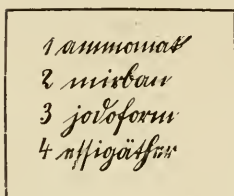 1 ammoniak
2 mirban
3 jodoform
4 essigäther